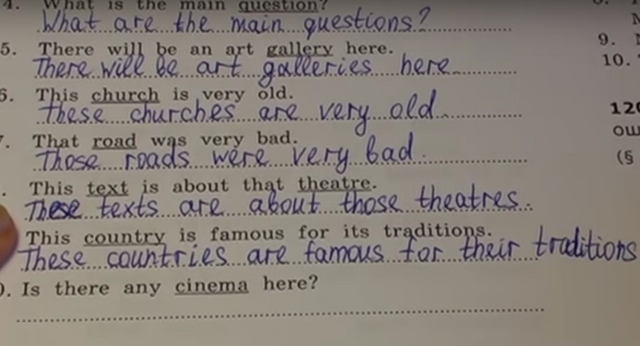 4. What is the main question?
What are the main questions?
5. There will be an art gallery here.
There will be art galleries here
6. This church is very old.
These churches are very old.
7. That road was very bad.
Those roads were very bad.
This text is about that theatre.
These texts are about those theatres.
This country is famous for its traditions.
These countries are famous for their traditions
0. Is there any cinema here?
9.
10.
120
ош
(§